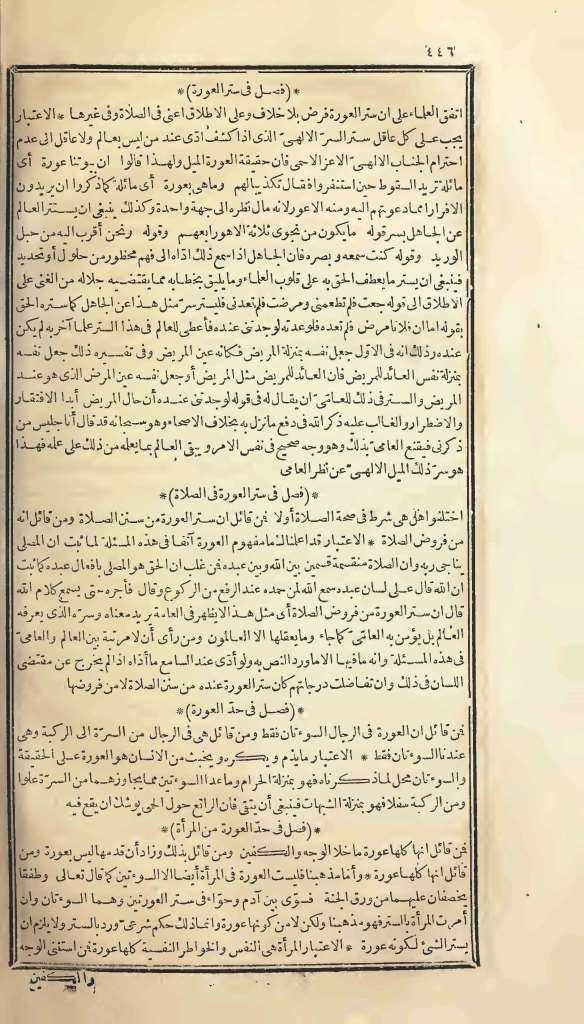 ٤٤٦
*(فصل فى ستر العورة)*
اتفق العلماء على ان ستر العورة فرض بلا خلاف وعلى الاطلاق اعنى فى الصلاة وفى غيرها * الاعتبار
يجب على كل عاقل ستر السرّ الالهىّ الذى اذا كشف أدّى عند من ليس بعالم ولا عاقل الى عدم
احترام الجناب الالهىّ الاعز الاحمى فان حقيقة العورة الميل ولهذا قالوا ان بيوتنا عورة أى
مائلة تريد السقوط حين استنفروا فقال تكذيبا لهم وما هى بعورة أى مائلة كما ذكروا ان يريدون
الا فرارا مما دعوتهم اليه ومنه الاعور لانه مال نظره الى جهة واحدة وكذلك ينبغى ان يستتر العالم
عن الجاهل بسر قوله ما يكون من نجوى ثلاثة الا هو رابعهم وقوله ونحن أقرب اليه من حبل
الوريد وقوله كنت سمعه وبصره فان الجاهل اذا سمع ذلك ادّاه الى فهم محظور من حلول أو تحديد
فينبغى ان يستر ما يعطف الحق به على قلوب العلماء وما يليق بخطابه مما يقتضيه جلاله من الغنى على
الاطلاق الى قوله جعت فلم تطعمنى ومرضت فلم تعدنى فليستر سرّ مثل هذا عن الجاهل كما ستره الحق
بقوله اما ان فلانا مرض فلم تعده فلو عدته لوجدتنى عنده فأعطى للعالم فى هذا الستر علما آخر به لم يكن
عنده وذلك انه فى الاوّل جعل نفسه بمنزلة المريض فكأنه عين المريض وفى تفسيره ذلك جعل نفسه
بمنزلة نفس العائد للمريض فان العائد للمريض مثل المريض أو جعل نفسه عين المرض الذى هو عند
المريض والستر فى ذلك للعامّى ان يقال له فى قوله لوجدتنى عنده أن حال المريض أبدا الافتقار
والاضطرار والغالب عليه ذكر الله فى دفع ما نزل به بخلاف الاصحاء وهو سبحانه قد قال أنا جليس من
ذكرنى فيقنع العامىّ بذلك وهو وجه صحيح فى نفس الامر ويبقى العالم بما يعلمه من ذلك على علمه فهذا
هو سرّ ذلك الميل الالهىّ عن نظر العامى
*(فصل فى ستر العورة فى الصلاة)*
اختلفوا هل هى شرط فى صحة الصلاة أولا فمن قائل ان ستر العورة من سنن الصلاة ومن قائل انه
من فروض الصلاة * الاعتبار قد اعلمناك ما مفهوم العورة آنفا فى هذه المسئلة لما ثبت ان المصلى
يناجى ربه وان الصلاة منقسمة قسمين بين الله وبين عبده فمن غلب ان الحق هو المصلى بأفعال عبده كما ثبت
ان الله قال على لسان عبده سمع الله لمن حمده عند الرفع من الركوع وقال فأجره حتى يسمع كلام الله
قال ان ستر العورة من فروض الصلاة أى مثل هذا لا يظهر فى العامة يريد معناه وسرّه الذى يعرفه
العالم بل يؤمن به العامّى كما جاء وما يعقلها الا العالمون ومن رأى أن لا مرتبة بين العالم والعامىّ
فى هذه المسئلة وانه ما فيها الا ما ورد النص به ولو أدى عند السامع ما أداه اذا لم يخرج عن مقتضى
اللسان فى ذلك وان تفاضلت درجاتهم كان ستر العورة عنده من سنن الصلاة لا من فروضها
*(فصل فى حدّ العورة)*
فمن قائل ان العورة فى الرجال السوءتان فقط ومن قائل هى فى الرجال من السرّة الى الركبة وهى
عندنا السوءتان فقط * الاعتبار ما يذم ويكره ويخبث من الانسان هو العورة على الحقيقة
والسوءتان محل لما ذكرناه فهو بمنزلة الحرام وما عدا السوءتين مما يجاوزهما من السرّة علوا
ومن الركبة سفلا فهو بمنزلة الشبهات فينبغى أن يتقى فان الراتع حول الحمى يوشك ان يقع فيه
*(فصل فى حدّ العورة من المرأة)*
فمن قائل انها كلها عورة ما خلا الوجه والكفين ومن قائل بذلك وزاد أن قدمها ليس بعورة ومن
قائل انها كلها عورة * وأما مذهبنا فليست العورة فى المرأة أيضا الا السوءتين كما قال تعالى وطفقا
يخصفان عليهما من ورق الجنة فسوّى بين آدم وحوّاء فى ستر العورتين وهما السوءتان وان
أمرت المرأة بالستر فهو مذهبنا ولكن لا من كونها عورة وانما ذلك حكم شرعىّ ورد بالستر ولا يلزم ان
يستر الشئ لكونه عورة * الاعتبار المرأة هى النفس والخواطر النفسية كلها عورة فمن استثنى الوجه
والكفين